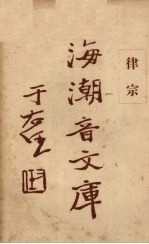 律宗
海潮音文庫
于右任